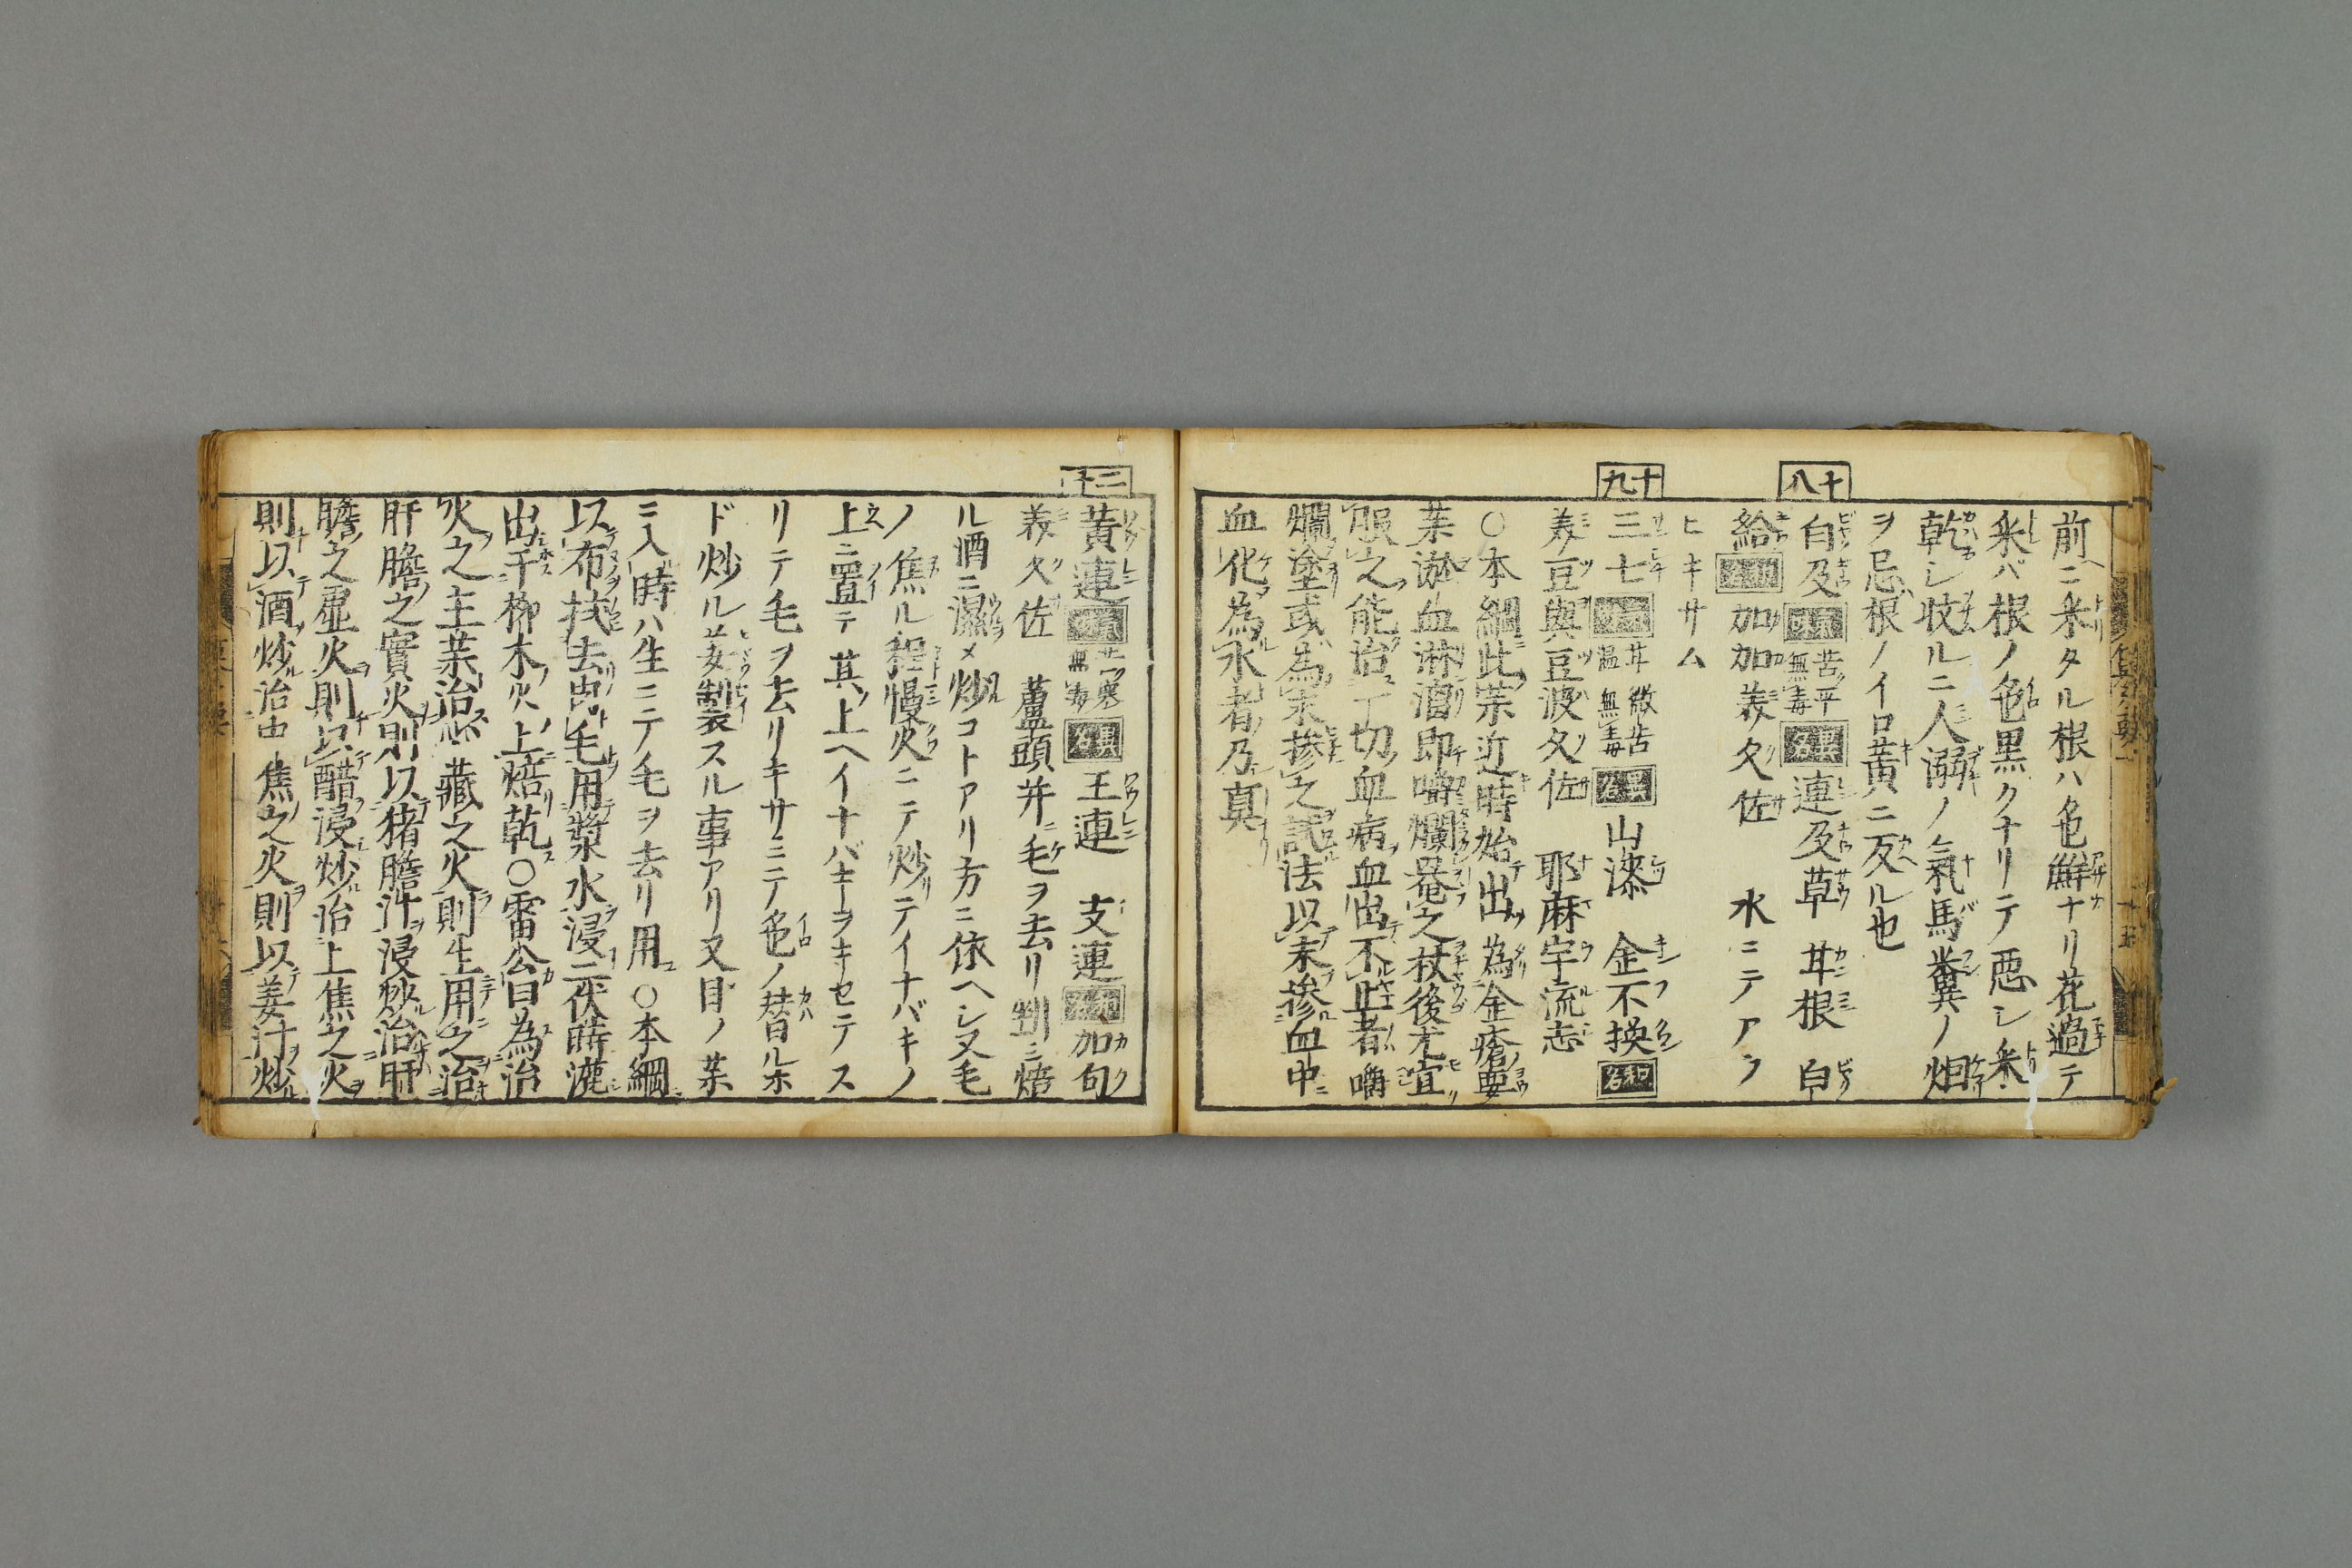 十八
十九
前ニ釆タル根ハ色鮮ナリ花過テ
釆バ根ノ色黒クナリテ悪シ釆
乾シ收ルニ人溺ノ氣馬糞ノ烟
ヲ忌根ノイロ黄ニ反ル也
白及 苦平無毒 異名 連及草 甘根 白
給 和名 加加美久佐 水ニテアラ
ヒキサム
三七 甘微苦温無毒 異名 山漆 金不換 和名
美豆與豆波久佐 耶麻宇流志
○本綱此藥近時始出為金瘡要
藥淤血淋漓即嚼爛罨之杖後尤宜
服之能治一切血病血出不止者嚼
爛塗或為末摻之試法以末摻血中
血化為水者乃真
二十
黄連 苦寒無毒 異名 王連 支連 和名 加句
美久佐 蘆頭并ニ毛ヲ去リ剉ミ焙
ル酒ニ濕メ炒コトアリ方ニ依ヘシ又毛
ノ焦ル程慢火ニテ炒テイナバキノ
上ニ置テ其上ヘイナバキヲキセテス
リテ毛ヲ去リキサミテ色ノ替ルホ
ド炒ル姜製スル事アリ又目ノ藥
ニ入時ハ生ニテ毛ヲ去リ用○本綱
以布拭去肉毛用漿水浸二伏時漉
出于柳木火上焙乾○雷公曰為治
火之主藥治 藏之火則生用之治
肝膽之實火則以猪膽汁浸炒治肝
膽之虚火則以醋浸炒治上焦之火
則以酒炒治中焦之火則以姜汁炒